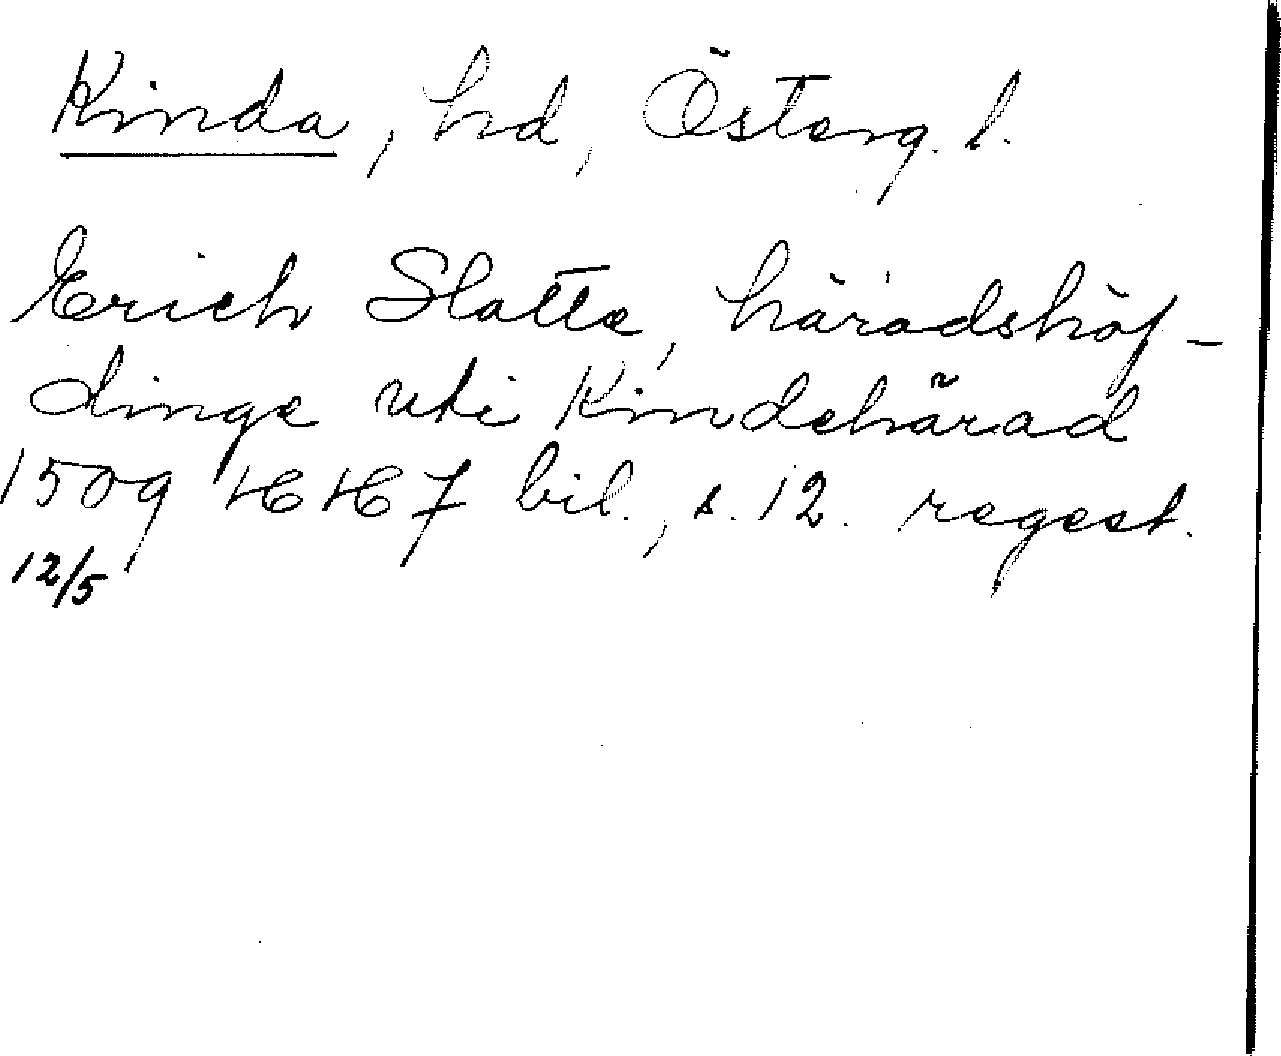 Kinda, hd, Österg. l.
Erich Slatte, häradshöf-
dinge uti Kindehärad
1509 HH 7 bil., s. 12. regest.
12/5